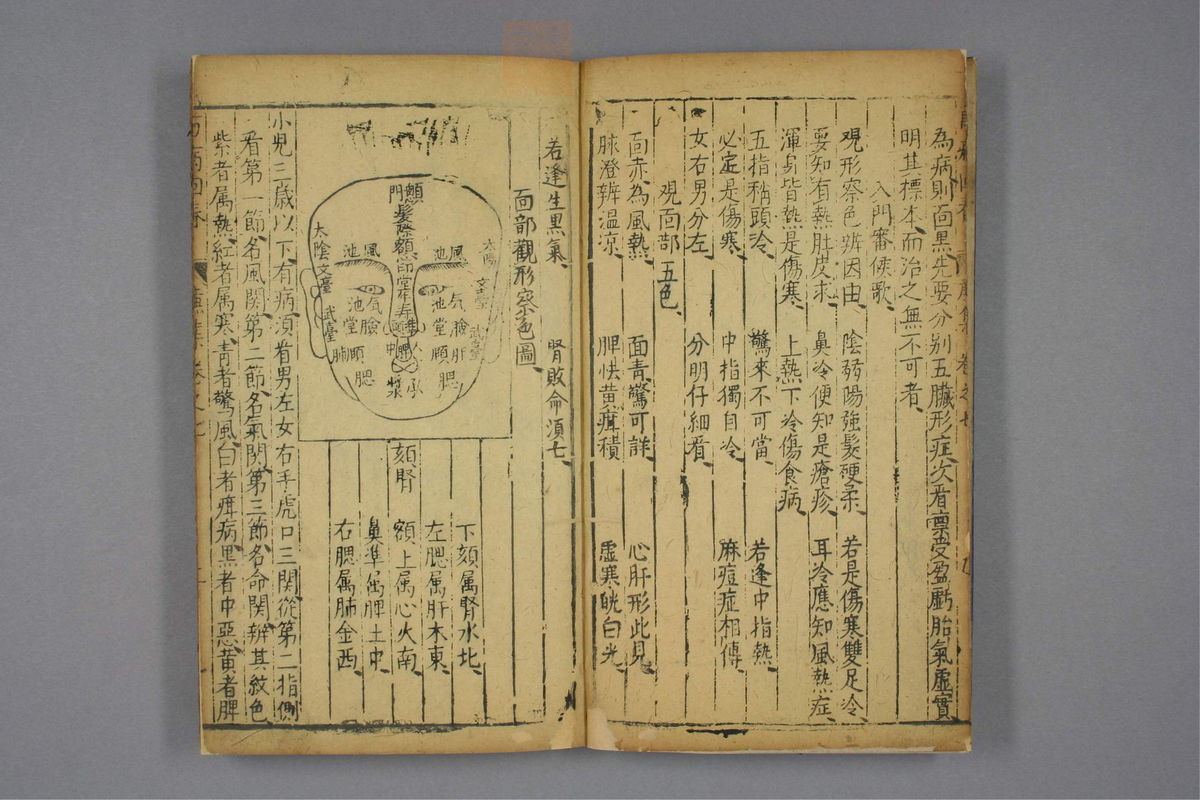 為病則面黑先要分别五臟形症次看禀受盈虧胎氣虛實
明其標本而治之無不可者
入門審候歌
观形察色辨因由 陰弱陽强髮硬柔 若是傷寒雙足冷
要知有熱肚皮求 鼻冷便知是瘡疹 耳冷應知風熱症
渾身皆熱是傷寒 上熱下冷傷食病
五指稍頭冷 驚來不可當 若逢中指熱
必定是傷寒 中指獨自冷 麻痘症相傳
女右男分左 分明仔細看
观面部五色
面赤為風熱 面青驚可詳 心肝形此見
脉澄辨温涼 脾怯黄疳積 虛寒㿠白光
若逢生黑氣 腎敗命須亡
面部觀形察色圖
顖門
髮際
額
印堂
年壽
太陰
太陽
文臺
文臺
武臺
武臺
風池
風池
気池
気池
臉堂
臉堂
準
人中
脾
肝
肺
頤
頤
腮
腮
承漿
頦腎
下頦属腎水北
左腮属肝木東
額上属心火南
鼻準属脾土中
右腮属肺金西
小兒三歳以下有病須看男左女右手虎口三関從第二指側
看第一節名風関第二節名氣関第三節名命関辨其紋色
紫者属熱紅者属寒青者驚風白者疳病黑者中惡黄者脾